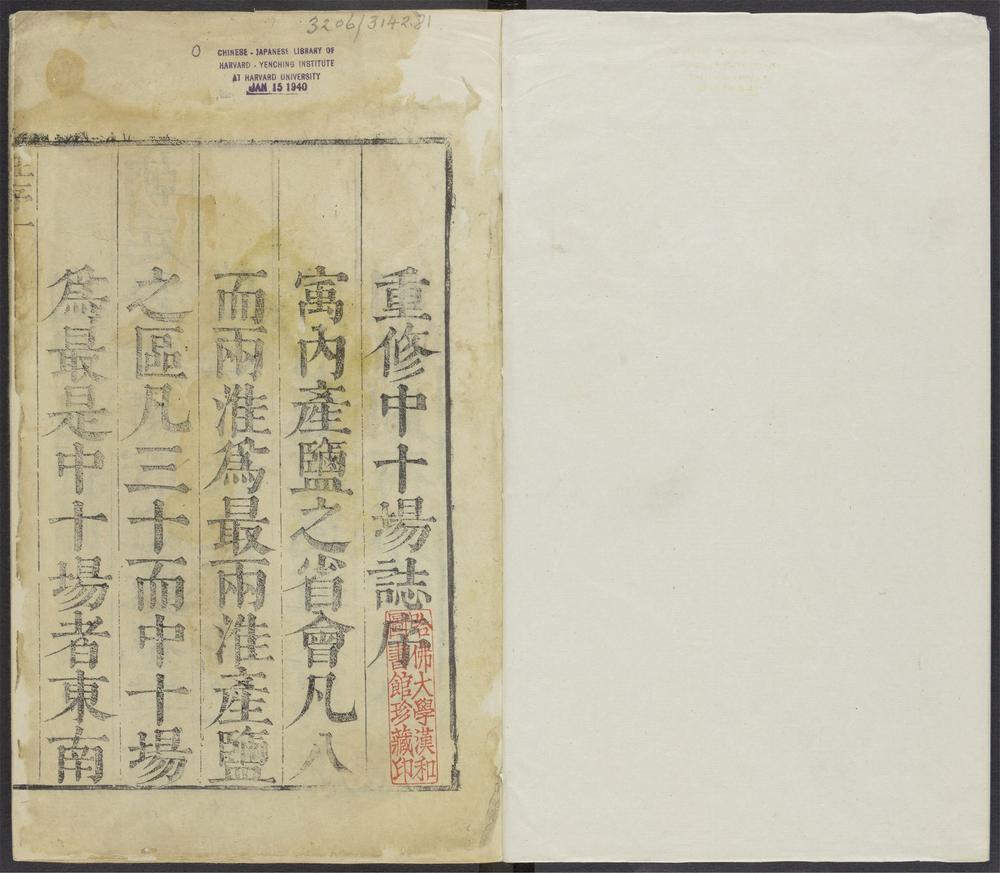 3206/3142.81
CHINESE - JAPANESE LIBRARY OF
HARVARD - YENCHING INSTITUTE
AT HARVARD UNIVERSITY
JAN 15 1940
重修中十場誌序
寓內產鹽之省會凡八
而兩淮爲最兩淮產鹽
之區凡三十而中十場
爲最是中十場者東南
哈佛大學漢和
圖書館珍藏印
序一